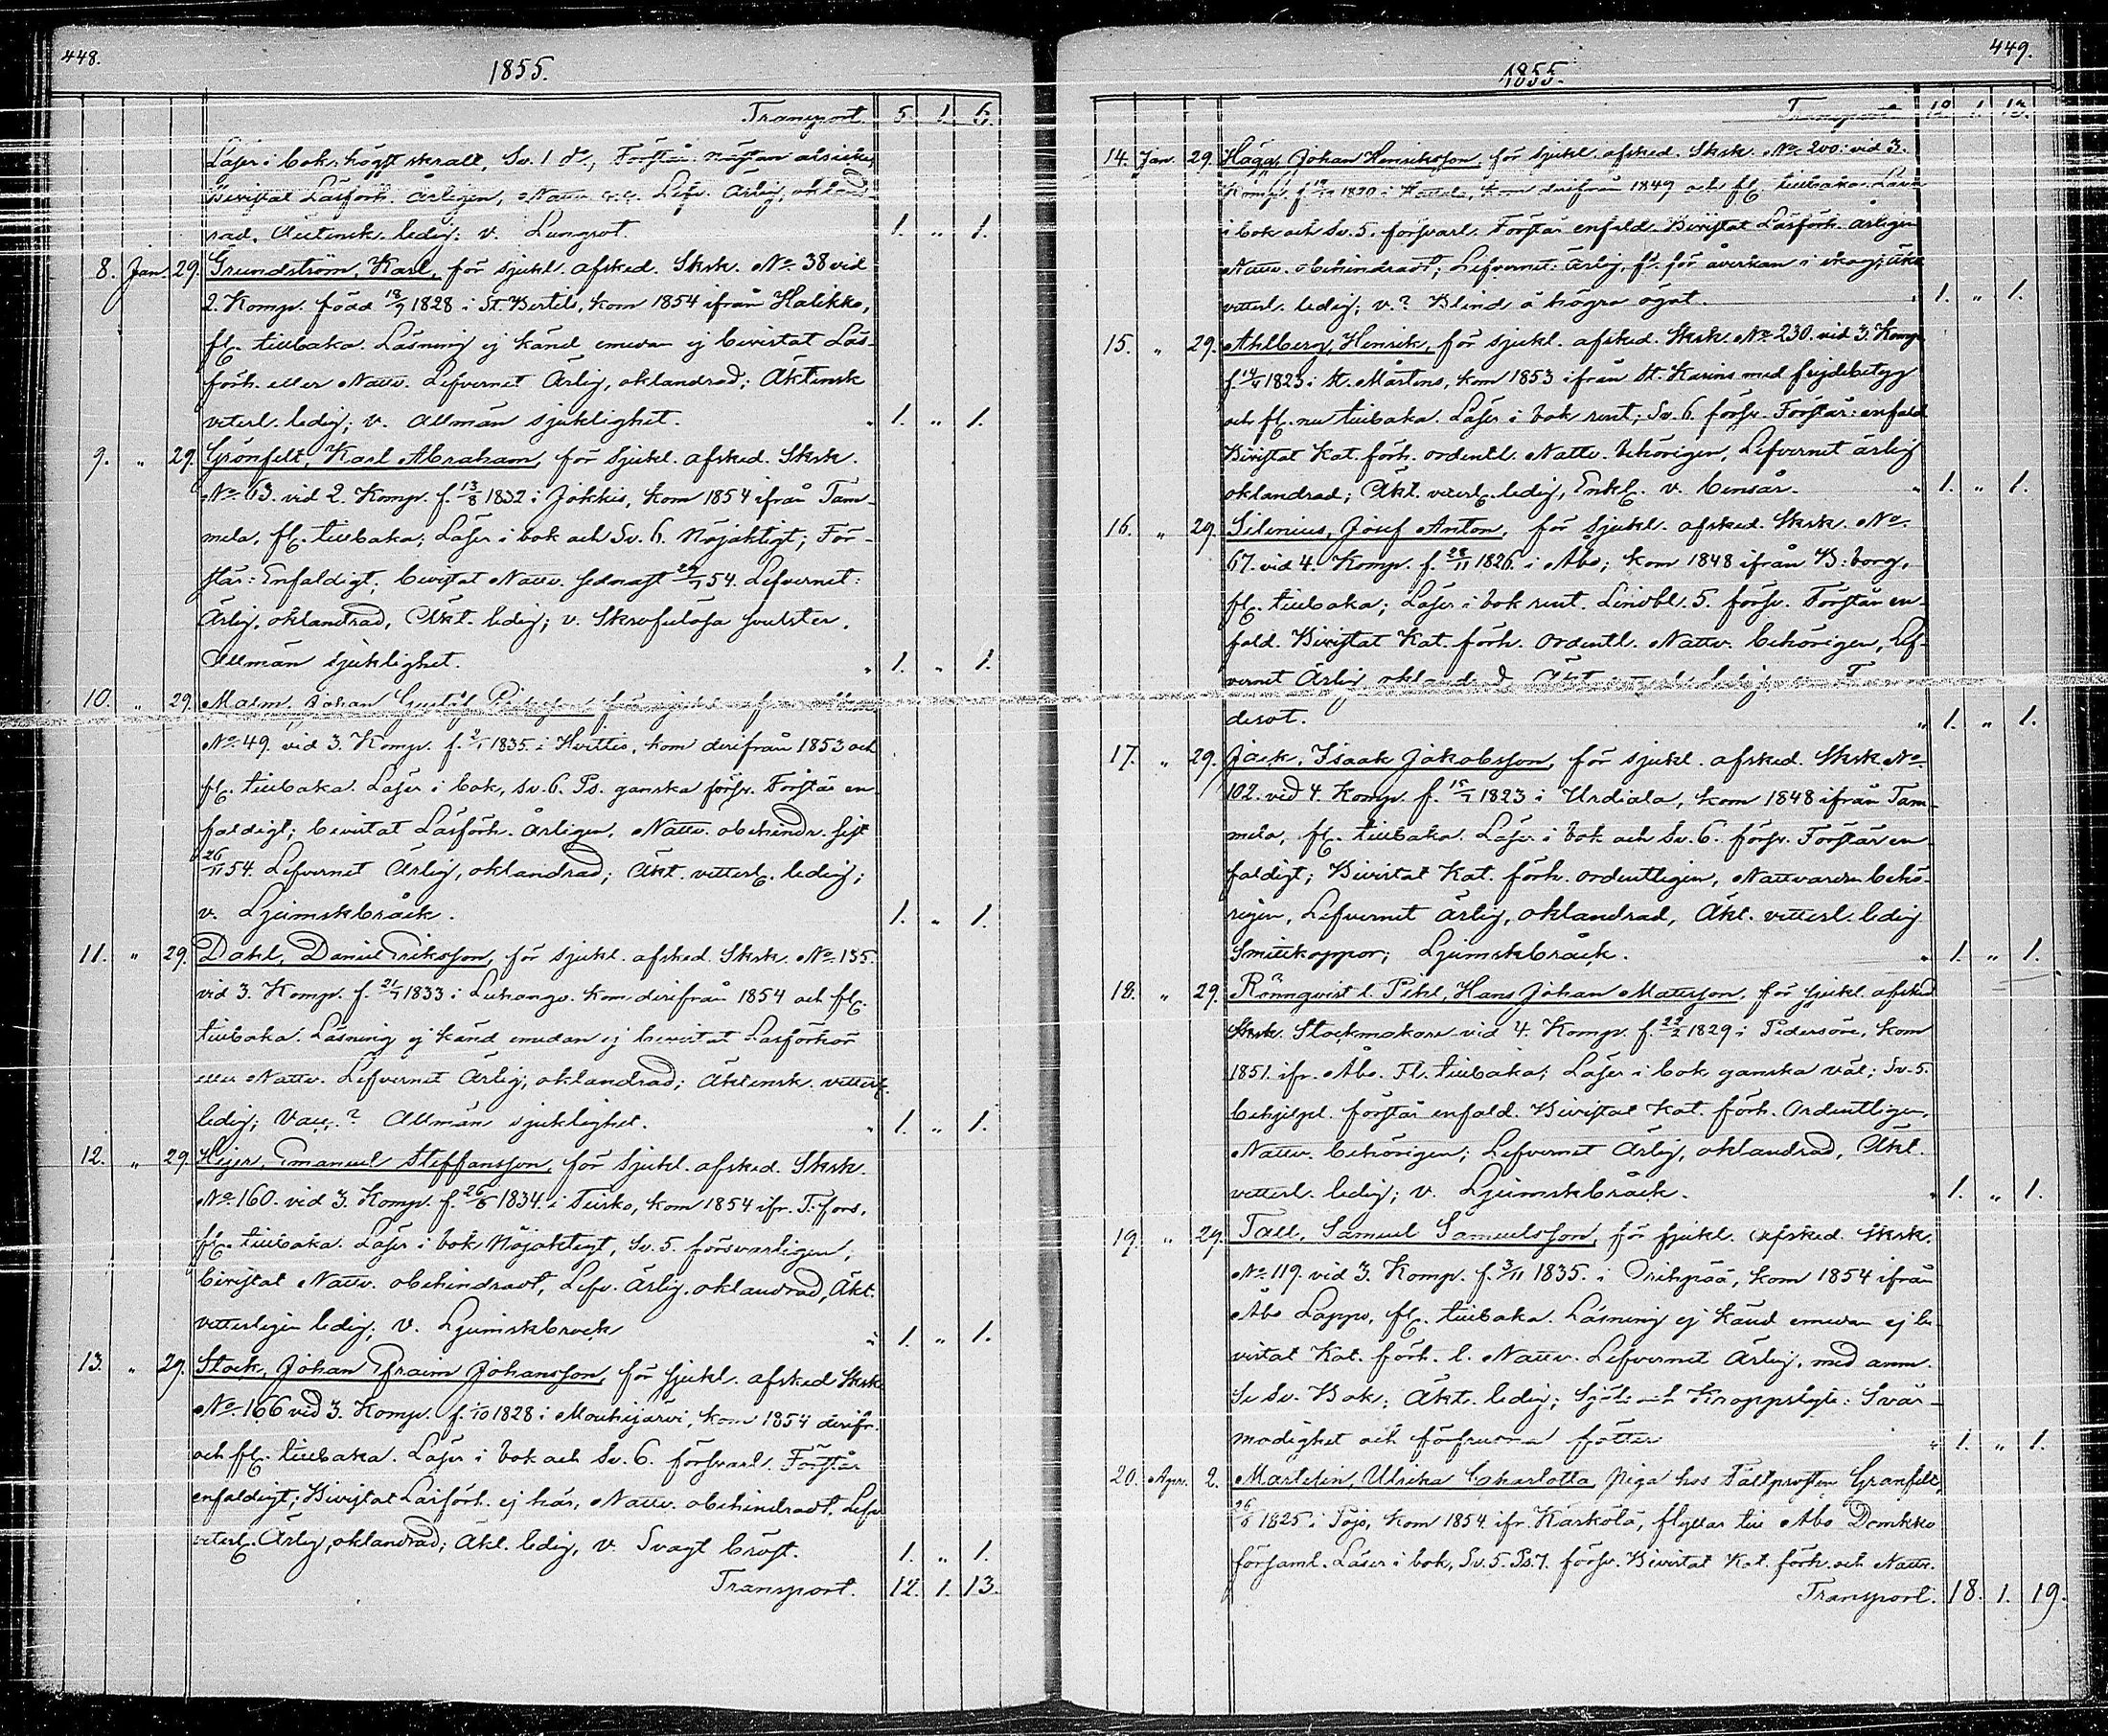 448.
1855.
Transport. 5. 1. 6.
Läser i bok högst skralt, Sv. 1 d:o, Förstår nästan alsicke,
Bevistat Läsförh. årligen, Nattv. Lefv. Ärlig, okland-
rad. Äktensk. ledig; v. Lungsot. 1. " 1.
8. Jan. 29. Grundström, Karl, för sjukl. afsked. Sksk. No. 38 vid
2. Komp. född 18/9 1828 i St. Bertils, kom 1854 ifrån Halikko,
fl. tillbaka. Läsning ej känd emedan ej bevistat Läs-
förh. eller Nattv. Lefvernet Ärlig, oklandrad; Äktensk
veterl. ledig; v. Allmän sjuklighet. " 1. " 1.
9. " 29. Grönfelt, Karl Abraham, för sjukl. afsked. Sksk.
No. 63. vid 2. Komp. f. 13/8 1832 i Jokkis, kom 1854 ifrån Tam-
mela, fl. tillbaka; Läser i bok och Sv. 6. Nöjaktigt; För-
står: Enfaldigt; bevistat Nattv. sednast 54. Lefvernet:
Ärlig, oklandrad, Äkt. ledig; v. Skrofulösa svulster.
Allmän sjuklighet. " 1. " 1.
10. " 29. Malm, Johan Gustaf för sjukl.
No. 49. vid 3. Komp. f. 2/1 1835. i Hvittis, kom derifrån 1853 och
fl. tillbaka. Läser i bok, Sv. 6. Ps. ganska försv. Förstår en-
faldigt; bevistat Läsförh. årligen, Nattv. obehindr. sist
26/11 54. Lefvernet Ärlig, oklandrad; Äkt. vetterl. ledig;
v. Ljumskbråck. 1. " 1.
11. " 29. Dahl, Daniel Eriksson, för sjukl. afsked. Sksk. No. 135.
vid 3. Komp. f. 21/7 1833 i Luhango. kom derifrån 1854 och fl.
tillbaka. Läsning ej känd emedan ej bevistat Läsförhör
eller Nattv. Lefvernet Ärlig, oklandrad; Äktensk. vetterl.
ledig; Vacc.? Allmän sjuklighet. " 1. " 1.
12. " 29. Hejer, Emanuel Steffansson, för sjukl. afsked. Sksk.
No. 160. vid 3. Komp. f. 26/6 1834. i Teisko, kom 1854 ifr. T:fors,
fl. tillbaka. Läser i bok Nöjaktigt, Sv. 5. försvarligen,
bevistat Nattv. obehindradt, Lefv. Ärlig. oklandrad, Äkt.
vetterligen ledig; V. Ljumskbrock " 1. " 1.
13. " 29. Stock, Johan Efraim Johansson, för sjukl. afsked Sksk.
No. 166 vid 3. Komp. f. 1/10 1828 i Mouhijärvi, kom 1854 derifr.
och fl. tillbaka. Läser i bok och Sv. 6. försvarl. Förstår
enfaldigt; Bevistat Läsförh. ej här, Nattv. obehindradt. Lefv
veterl. Ärlig, oklandrad; Äkt. ledig, v. Svagt bröst. 1. " 1.
Transport. 12. 1. 13.
449.
1855.
Transport 12. 1. 13.
14. Jan. 29. Hägg, Johan Henriksson, för sjukl. afsked. Sksk. No. 200: vid 3.
Komp. f. 1820 i kom derifrån 1849 och fl. tillbaka. Läser
i bok och Sv. 5. försvarl. Förstår enfald. Bevistat Läsförh. årligen
Nattv. obehindradt; Lefvernet: Ärlig, för åverkan i skog; Äkt.
vetterl. ledig; v.? Blind å högra ögat. " 1. " 1.
15. " 29. Ahlberg, Henrik, för sjukl. afsked. Sksk. No. 230. vid 3. Komp
f. 1823 i St. Mårtens, kom 1853 ifrån St. Karins med frejdebetyg
och fl. nu tillbaka. Läser i bok rent; Sv. 6. försv. Förstår: enfald
Bevistat Kat. förh. ordentl. Nattv. behörigen, Lefvernet ärlig
oklandrad; Äkt. veterl. ledig, Enkl. v. bensår. " 1. " 1.
16. " 29. Silenius, Josef Anton, för sjukl. afsked. Sksk. No.
67. vid 4. Komp. f. 28/11 1826. i Åbo; kom 1848 ifrån B:borg,
fl. tillbaka; Läser i bok rent. Lindbl. 5. försv. Förstår en-
fald. Bevistat Kat. förh. Ordentl. Nattv. behörigen, Lef-
vernet Ärlig oklandrad Äkt ledig
desot. " 1. " 1.
17. " 29. Jack, Isaak Jakobsson, för sjukl. afsked. Sksk. No.
102. vid 4. Komp. f. 15/7 1823 i Urdiala, kom 1848 ifrån Tam-
mela, fl. tillbaka. Läser i bok och Sv. 6. försv. Förstår en-
faldigt; Bevistat Kat. förh. ordentligen, Nattvarden behö-
rigen, Lefvernet ärlig, oklandrad, Äkt. vetterl. ledig
Smittkoppor; Ljumskbråck. " 1. " 1.
18. " 29. Rönnqvist l. Pihl, Hans Johan Mattsson, för sjukl. afsked
Sksk. Stockmakare vid 4. Komp. f. 1829 i Pedersöre, kom
1851. ifr. Åbo. Fl. tillbaka; Läser i bok ganska väl; Sv. 5.
behjelpl. förstår enfald. Bevistat Kat. förh. Ordentligen,
Nattv. behörigen; Lefvernet Ärlig, oklandrad, Äkt.
vetterl. ledig; v. Ljumskbråck. " 1. " 1.
19. " 29 Tall, Samuel Samuelsson, för sjukl. afsked. Sksk.
No. 119. vid 3. Komp. f. 3/11 1835. i Oripää, kom 1854 ifrån
Åbo Lappo, fl. tillbaka. Läsning ej känd emedan ej be-
vistat Kat. förh. l. Nattv. Lefvernet Ärlig, med anm.
Se Sv. Bok; Äkt. ledig; Själs och Kroppslyte: Svår-
modighet och förfrusna fötter " 1. " 1.
20. Apr. 2. Martelin, Ulrika Charlotta, piga hos Fältprosten Granfelt,
26/6 1825 i Pojo, kom 1854. ifr. Kärkölä, flyttar till Åbo Domkko
församl. Läser i bok, Sv. 5. Ps. 7. försv. Bevistat Kat. förh. och Nattv.
Transport. 18. 1. 19.